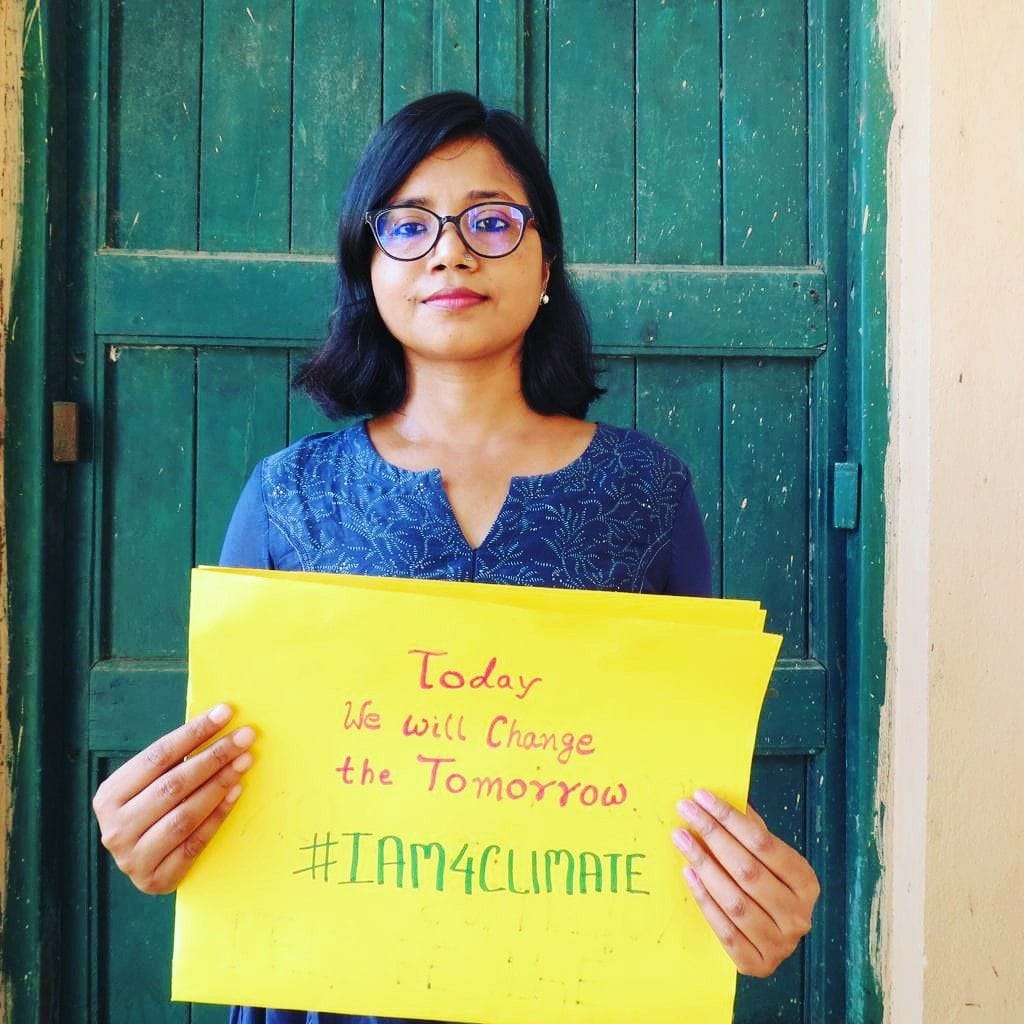 Today
We will Change
the Tomorrow.
#IAM4CLIMATE